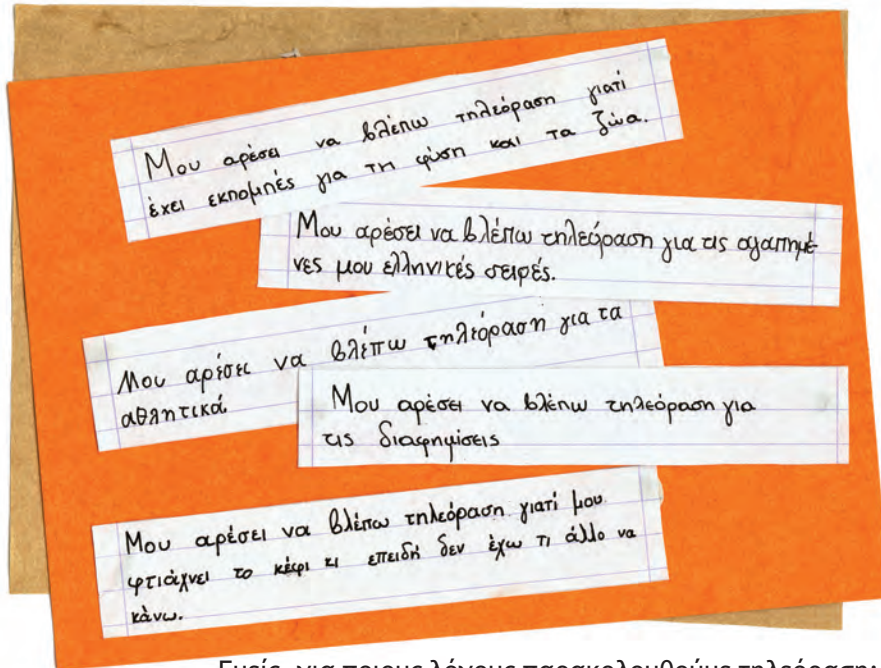 Μου αρέσει να βλέπω τηλεόραση γιατί
έχει εκπομπές για τη φύση και τα ζώα.
Μου αρέσει να βλέπω τηλεόραση για τις αγαπημέ-
νες μου ελληνικές σειρές.
Μου αρέσει να βλέπω τηλεόραση για τα
αθλητικά.
Μου αρέσει να βλέπω τηλεόραση για
τις διαφημίσεις
Μου αρέσει να βλέπω τηλεόραση γιατί μου
φτιάχνει το κέφι κι επειδή δεν έχω τι άλλο να
κάνω.
Εμείς, για ποιους λόγους παρακολουθούμε τηλεόραση;